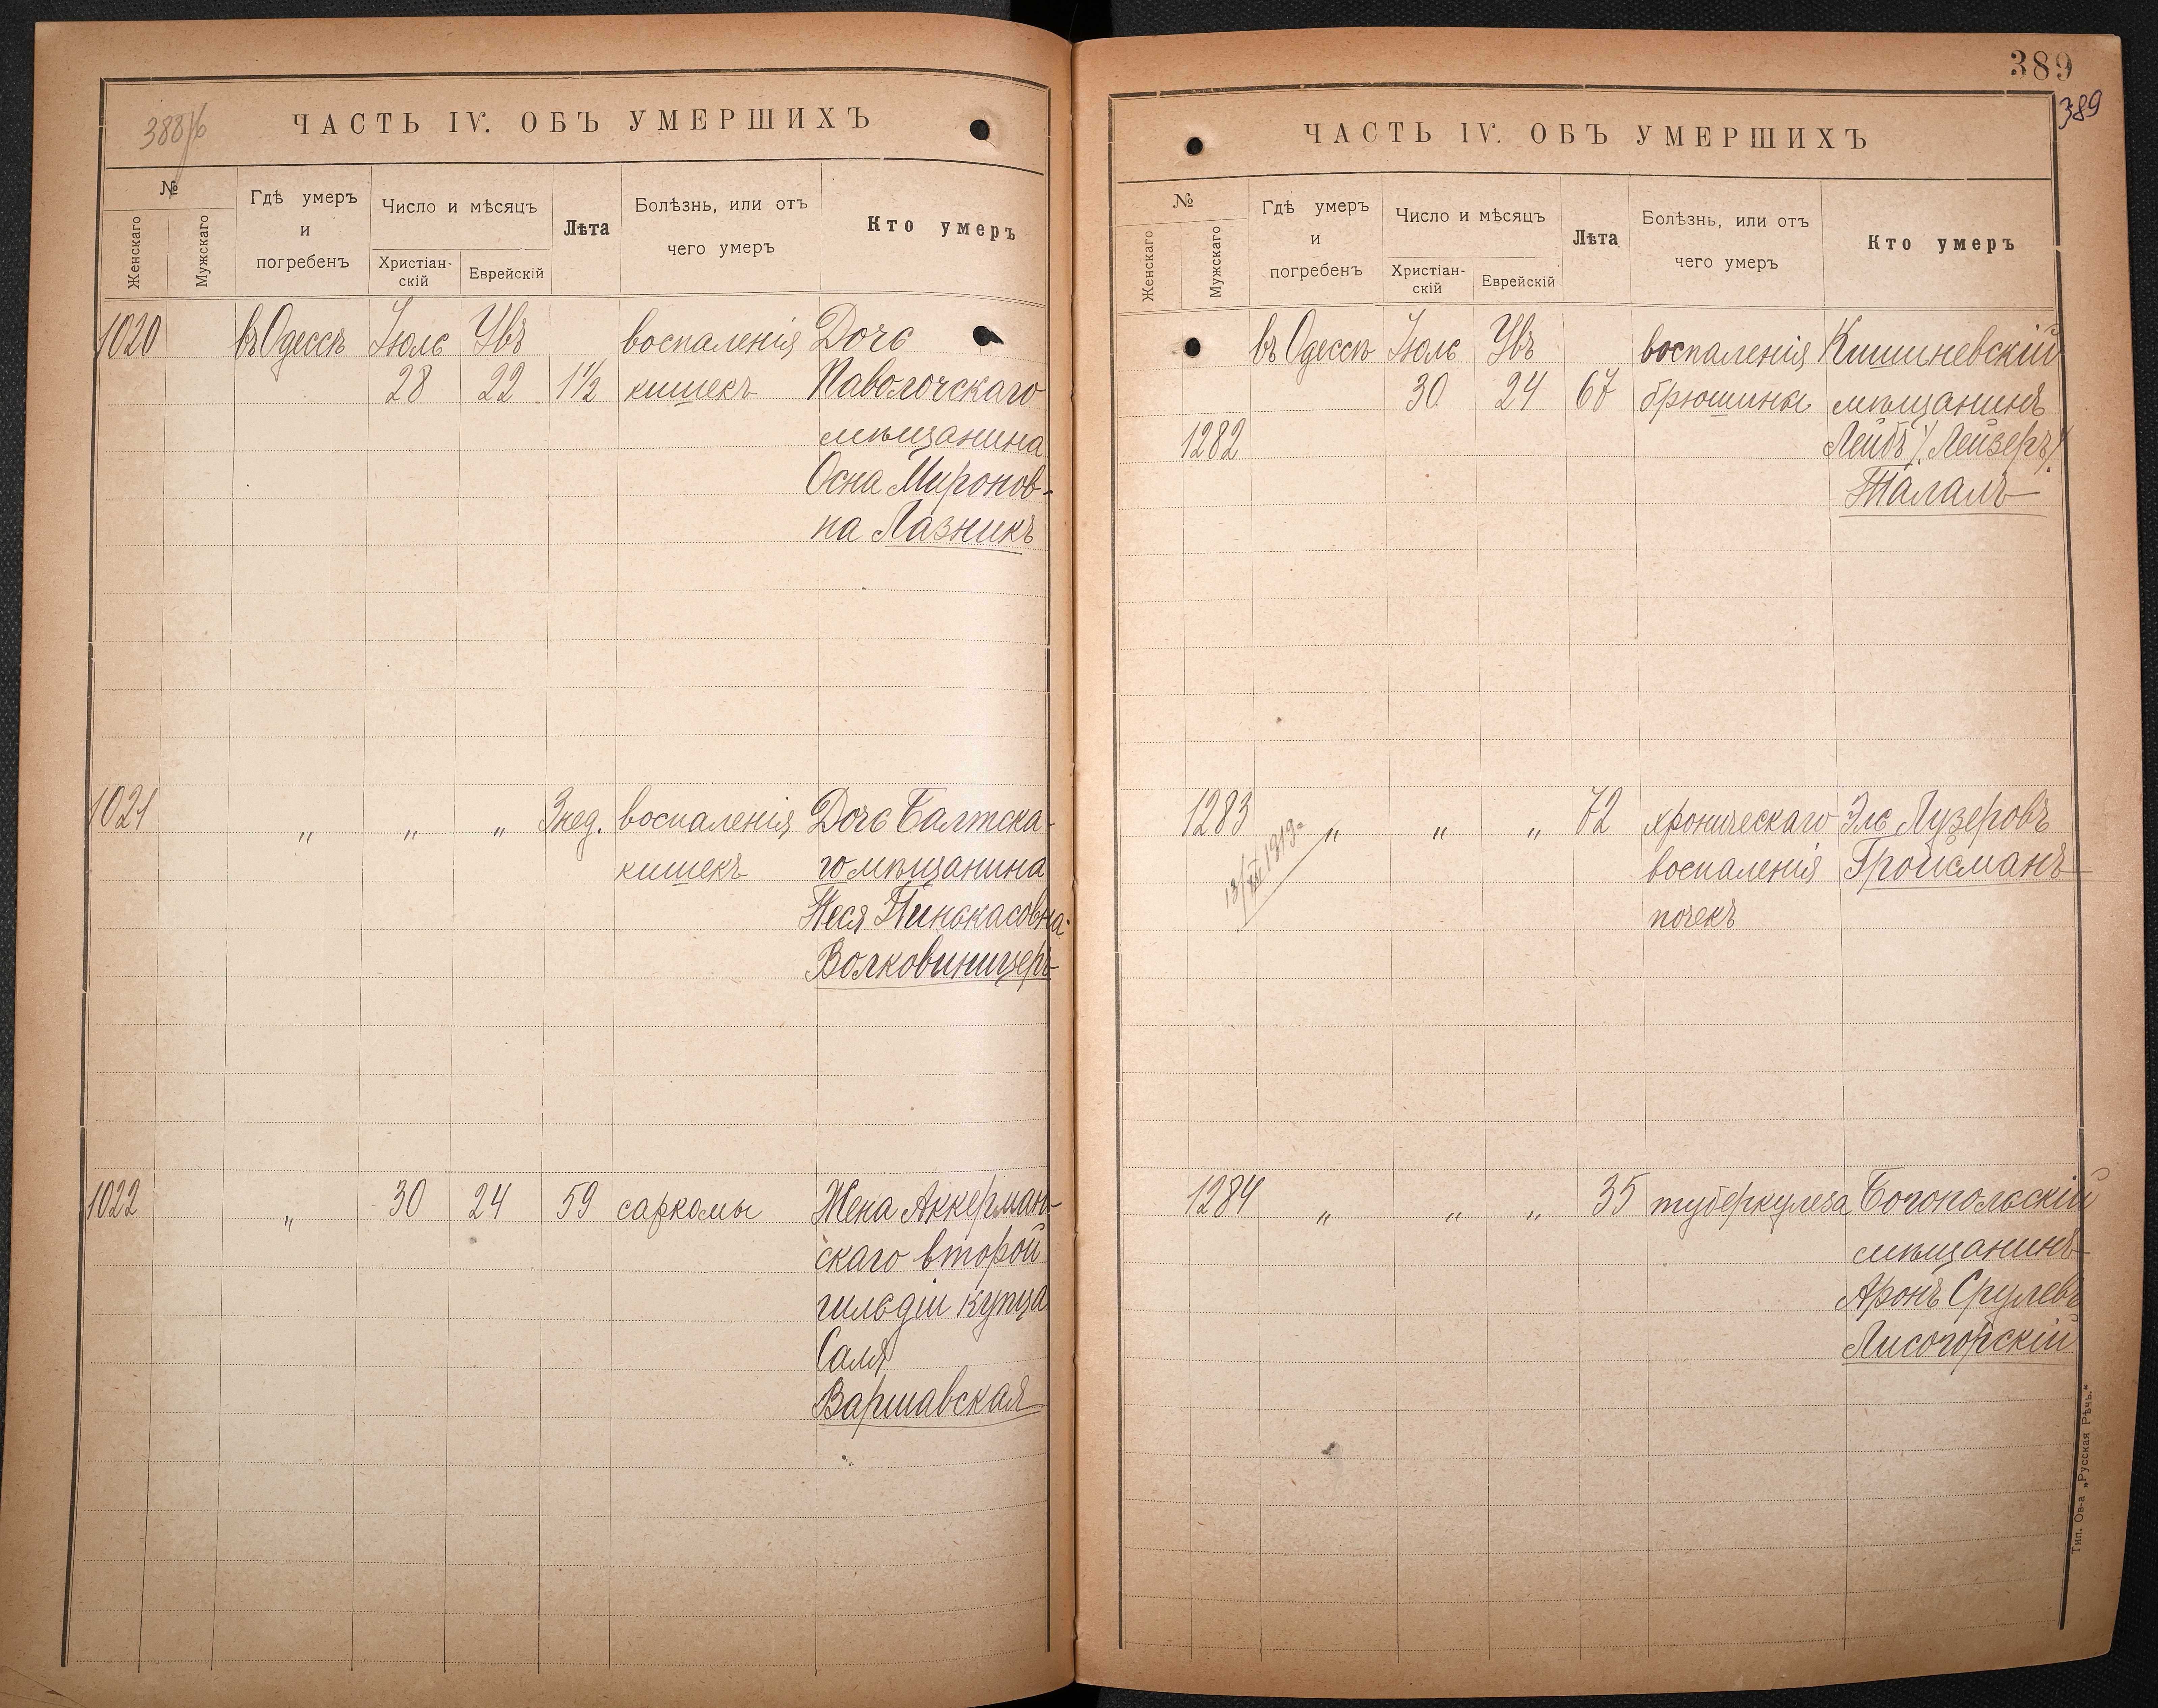 388/б
ЧАСТЬ IV. ОБЪ УМЕРШИХЪ
№
Женскаго
Мужскаго
Гдѣ умеръ
и
погребенъ
Число и мѣсяцъ
Христіан-
скій
Еврейскій
Лѣта
Болѣзнь, или отъ
чего умеръ
Кто умеръ
1020 въ Одессѣ Іюль Увъ воспаленія Дочь
28 22 1½ кишекъ Паволочскаго
мѣщанина
Осна Миронов-
на Лазникъ
1021 " " " 3 нед. воспаленія Дочь Балтска-
кишекъ го мѣщанина
Неся Пинькасовна
Волковиницеръ
1022 " 30 24 59 саркомы Жена Аккерман-
скаго второй
гильдіи купца
Саля
Варшавская
389
389
ЧАСТЬ IV. ОБЪ УМЕРШИХЪ
№
Женскаго
Мужскаго
Гдѣ умеръ
и
погребенъ
Число и мѣсяцъ
Христіан-
скій
Еврейскій
Лѣта
Болѣзнь, или отъ
чего умеръ
Кто умеръ
въ Одессѣ Іюль Увъ воспаленія Кишиневскій
30 24 67 брюшины мѣщанинъ
1282 Лейбъ /Лейзеръ/
Талалъ
1283 " " " 72 хроническаго Эль Лузеровъ
воспаленія Гройсманъ
почекъ
1284 " " " 35 туберкулеза Богопольскій
мѣщанинъ
Аронъ Срулевъ
Лисогорскій
Тип. Ов-а „Русская Рѣчь."